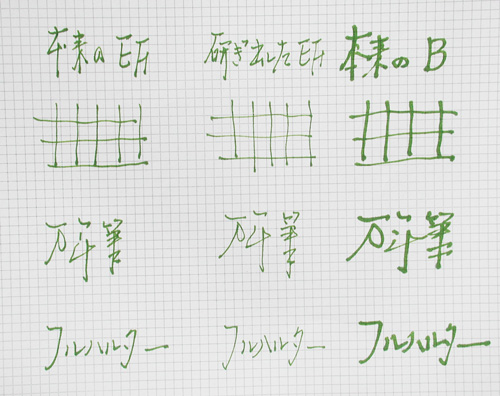 本来の EF 研ぎ出した EF 本来の B
万年筆 万年筆 万年筆
フルハルター フルハルター フルハルター